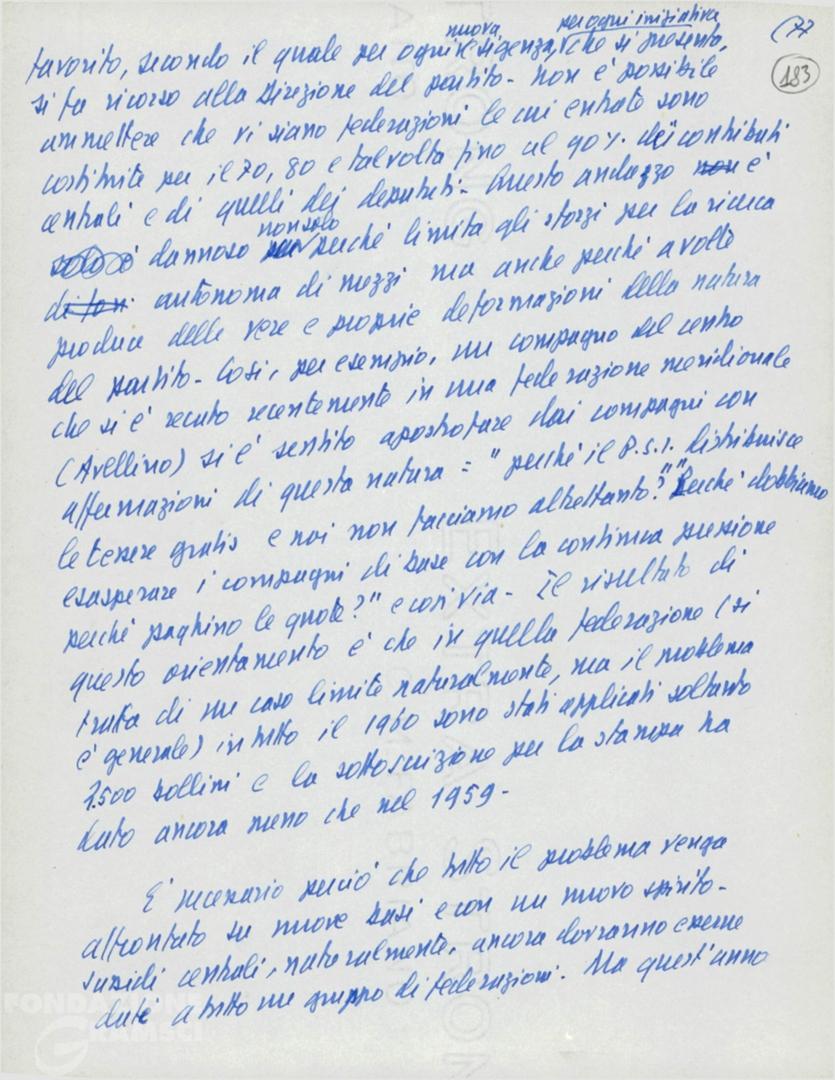 nuova per ogni iniziativa (77
183
favorito, secondo il quale per ogni esigenza, che si presenta,
si fa ricorso alla Direzione del partito - non è possibile
ammettere che vi siano federazioni le cui entrate sono
costituite per il 70, 80 e talvolta fino al 90% dei contributi
centrali e di quelli dei deputati. Questo andazzo non è
solo è dannoso non solo perché limita gli sforzi per la ricerca
di fon autonoma di mezzi ma anche perché a volte
produce delle vere e proprie deformazioni della natura
del partito - Così, per esempio, un compagno del centro
che si è recato recentemente in una federazione meridionale
(Avellino) si è sentito apostrofare dai compagni con
affermazioni di questa natura = "perché il P.S.I. distribuisce
le tessere gratis e noi non facciamo altrettanto?" "Perché dobbiamo
esasperare i compagni di base con la continua pressione
perché paghino le quote?" e così via - Il risultato di
questo orientamento è che in quella federazione (si
tratta di un caso limite naturalmente, ma il problema
è generale) in tutto il 1960 sono stati applicati soltanto
7.500 bollini e la sottoscrizione per la stampa ha
dato ancora meno che nel 1959 -
E' necessario perciò che tutto il problema venga
affrontato su nuove basi e con un nuovo spirito -
sussidi centrali, naturalmente, ancora dovranno essere
date a tutto un gruppo di federazioni. Ma quest'anno
FONDAZIONE
GRAMSCI